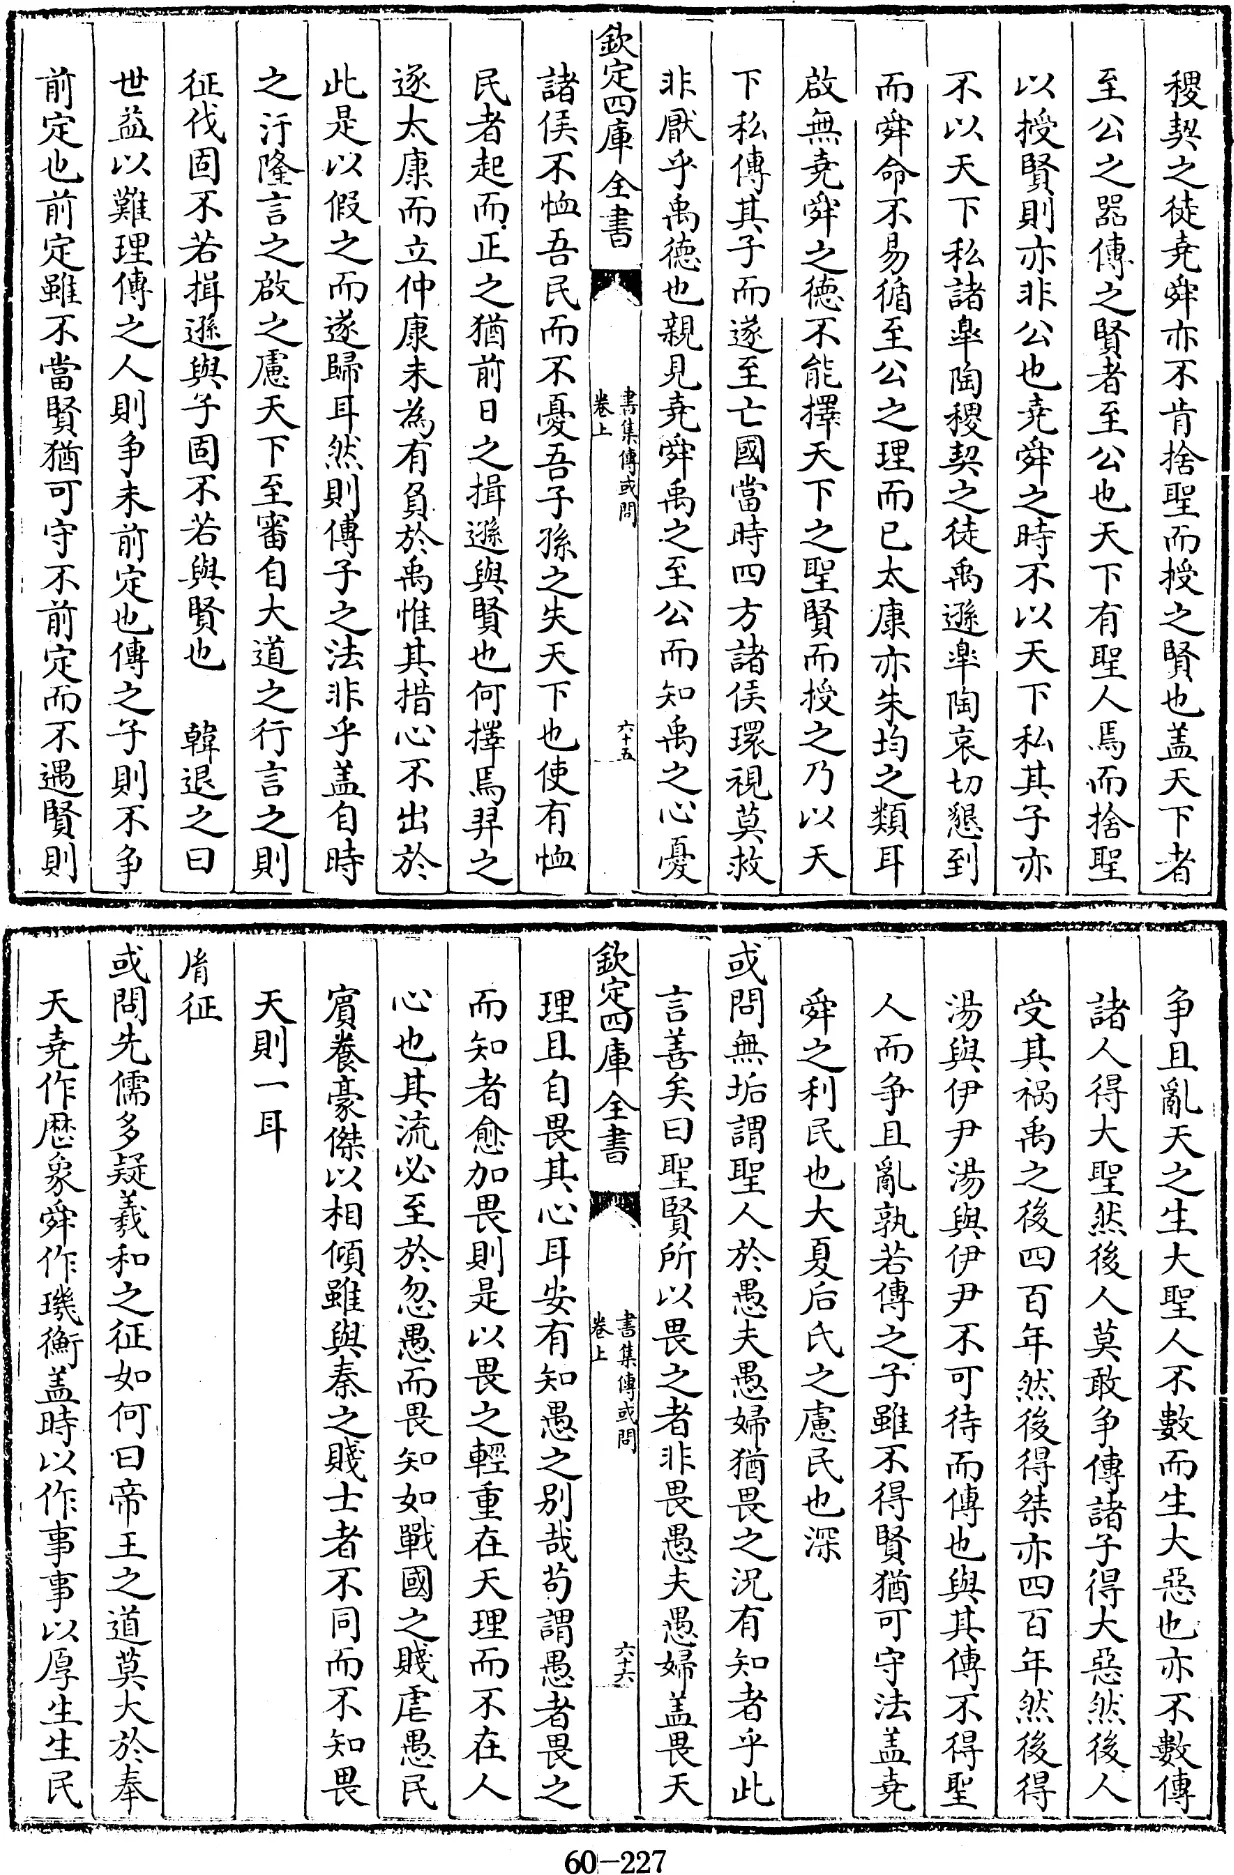 稷契之徒堯舜亦不肯捨聖而授之賢也盖天下者
至公之器傳之賢者至公也天下有聖人焉而捨聖
以授賢則亦非公也堯舜之時不以天下私其子亦
不以天下私諸臯陶稷契之徒禹遜臯陶哀切懇到
而舜命不易循至公之理而已太康亦朱均之類耳
啟無堯舜之徳不能擇天下之聖賢而授之乃以天
下私傳其子而遂至亡國當時四方諸侯環視莫救
非厭乎禹徳也親見堯舜禹之至公而知禹之心憂
欽定四庫全書
書集傳或問
卷上
六十五
諸侯不恤吾民而不憂吾子孫之失天下也使有恤
民者起而正之猶前日之揖遜與賢也何擇焉羿之
逐太康而立仲康未為有負於禹惟其措心不出於
此是以假之而遂歸耳然則傳子之法非乎盖自時
之汙隆言之啟之慮天下至審自大道之行言之則
征伐固不若揖遜與子固不若與賢也　韓退之曰
世益以難理傳之人則争未前定也傳之子則不争
前定也前定雖不當賢猶可守不前定而不遇賢則
争且亂天之生大聖人不數而生大惡也亦不數傳
諸人得大聖然後人莫敢争傳諸子得大惡然後人
受其禍禹之後四百年然後得桀亦四百年然後得
湯與伊尹湯與伊尹不可待而傳也與其傳不得聖
人而争且亂孰若傳之子雖不得賢猶可守法盖堯
舜之利民也大夏后氏之慮民也深
或問無垢謂聖人於愚夫愚婦猶畏之況有知者乎此
言善矣曰聖賢所以畏之者非畏愚夫愚婦盖畏天
欽定四庫全書
書集傳或問
卷上
六十六
理且自畏其心耳安有知愚之别哉茍謂愚者畏之
而知者愈加畏則是以畏之輕重在天理而不在人
心也其流必至於忽愚而畏知如戰國之賤虐愚民
賓養豪傑以相傾雖與秦之賤士者不同而不知畏
天則一耳
胤征
或問先儒多疑羲和之征如何曰帝王之道莫大於奉
天堯作厯象舜作璣衡盖時以作事事以厚生生民
60-227